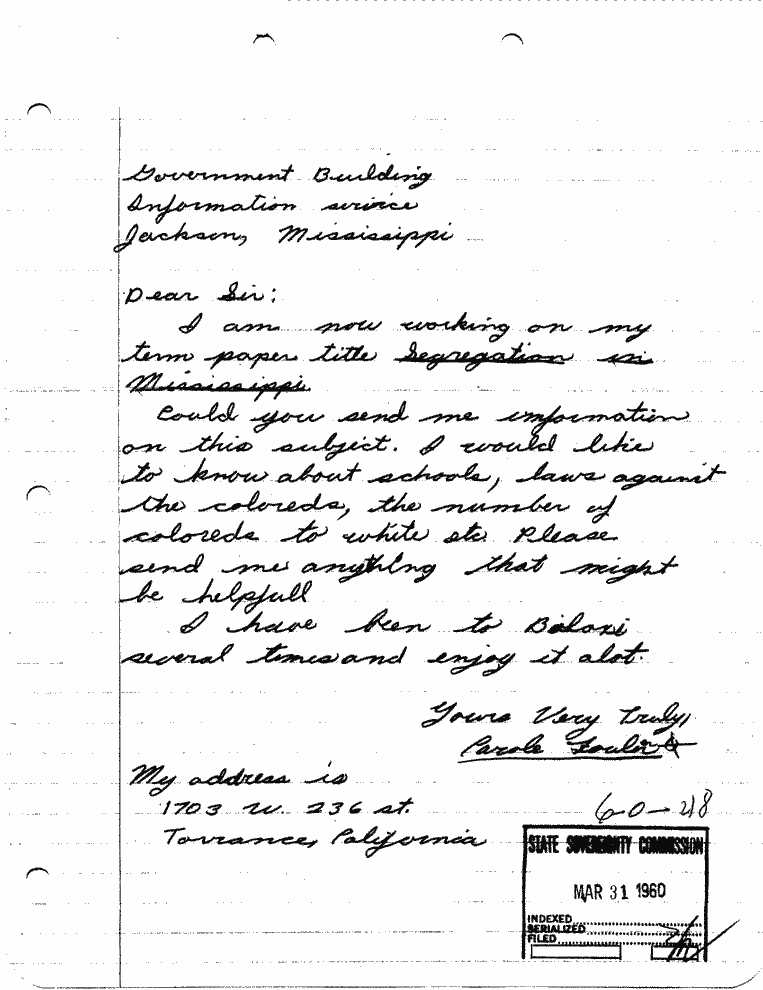 Government Building
Information serivce
Jackson, Mississippi
Dear Sir:
I am now working on my
term paper title Segregation in
Mississippi.
Could you send me imformation
on this subject. I would like
to know about schools, laws against
the coloreds, the number of
coloreds to white etc. Please
send me anything that might
be helpfull
I have been to Biloxi
several times and enjoy it alot.
Yours Very Truly,
Carole
My address is
1703 W. 236 st.
Torrance, California
60-48
STATE SOVEREIGNTY COMMISSION
MAR 31 1960
INDEXED
SERIALIZED
FILED